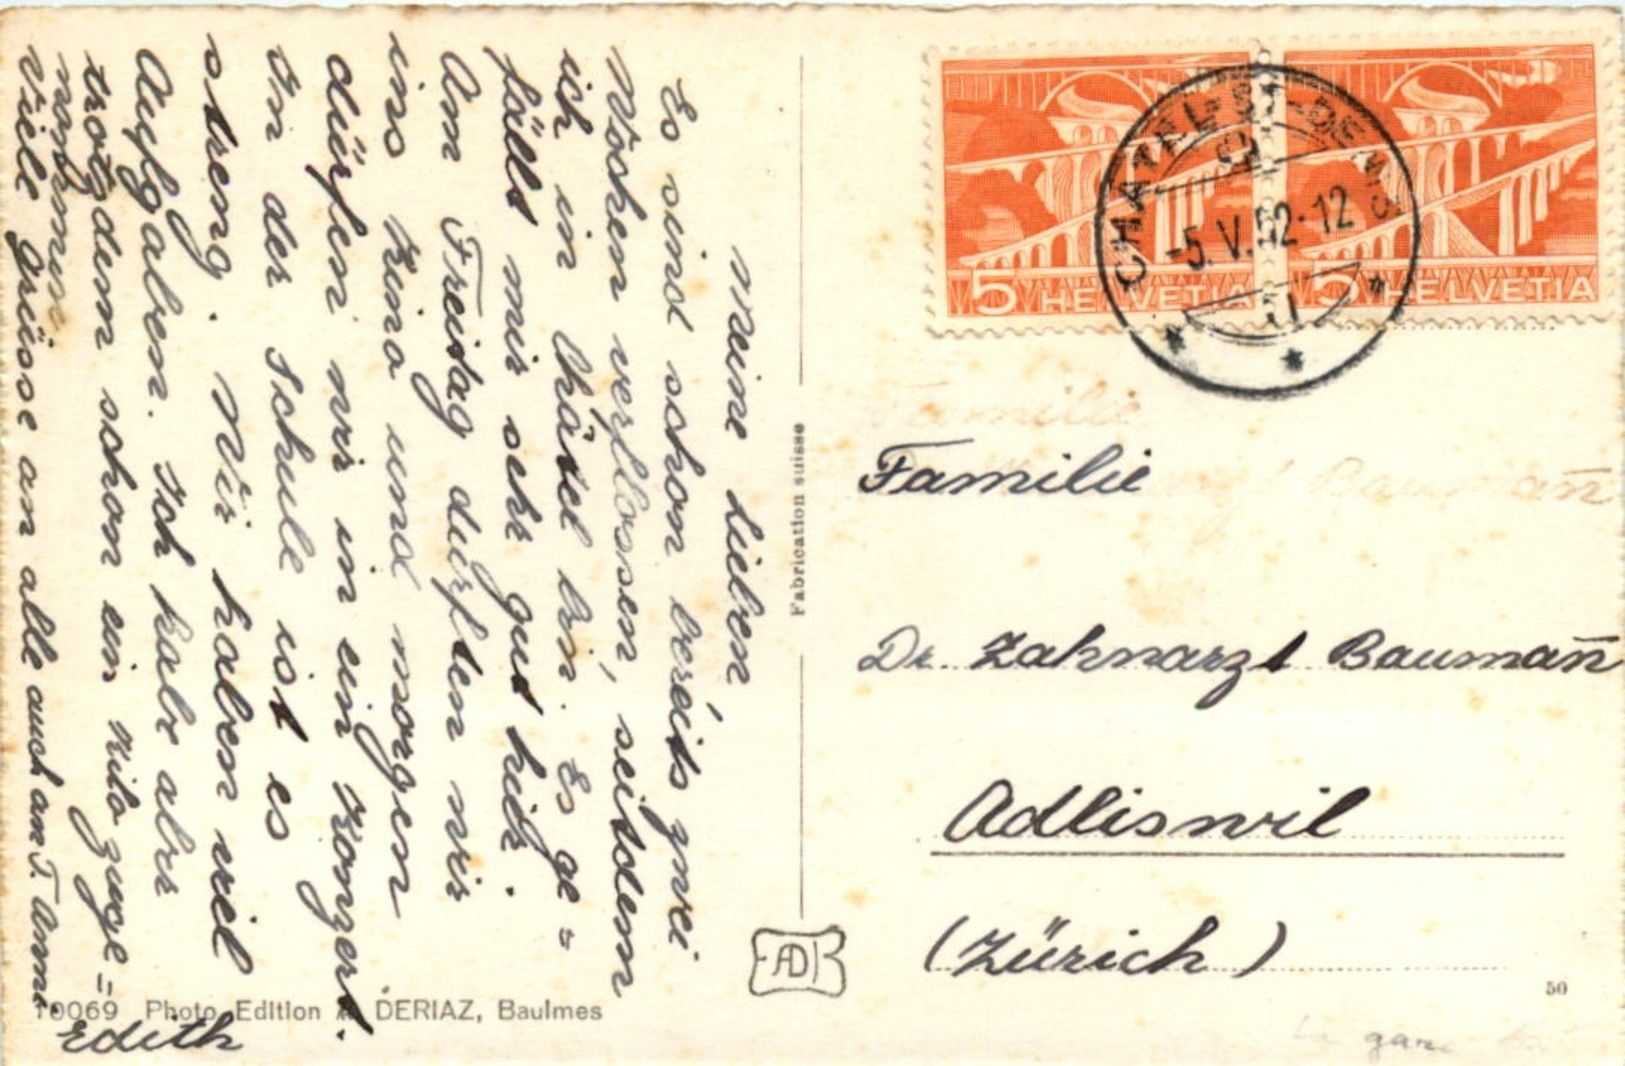 Meine Lieben
Es sind schon bereits zwei
Wochen verflossen, seitdem
ich in Châtel bin. Es ge=
fällt mir sehr gut hier.
Am Freitag durften wir
ins Kino und morgen
dürfen wir in ein Konzert.
In der Schule ist es
streng. Wir haben viel
Aufgaben. Ich habe aber
trotzdem schon ein Kilo zuge=
nommen.
Viele Grüsse an alle auch an T. Anni
Edith
10069 Photo Edition A. DERIAZ, Baulmes
Fabrication suisse
AD
5 HELVETIA
5 HELVETIA
CHATEL-ST-DENIS
-5. V. 52-12
Familie
Baumañ
Familie
Dr. Zahnarzt Baumañ
Adliswil
(Zürich)
50
La gare